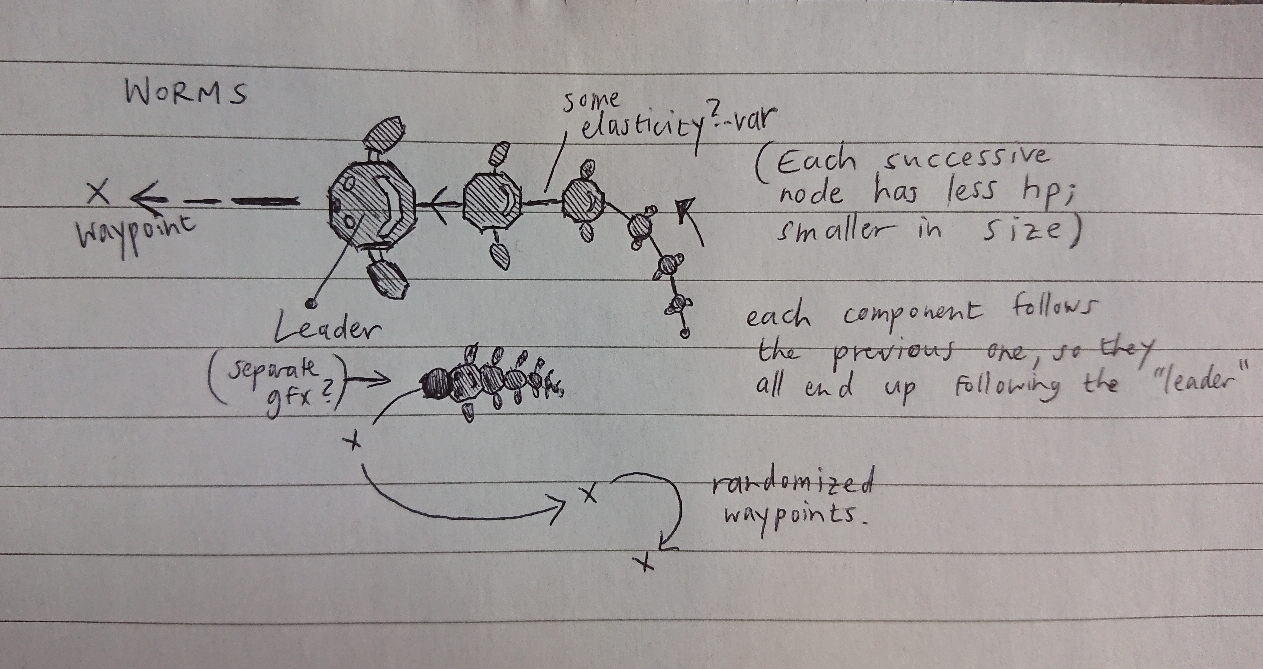 WORMS
some
elasticity?--var
(Each successive
node has less hp;
smaller in size)
X
waypoint
Leader
(separate
gfx?)
each component follows
the previous one, so they
all end up following the "leader"
X
X
randomized
waypoints.
X